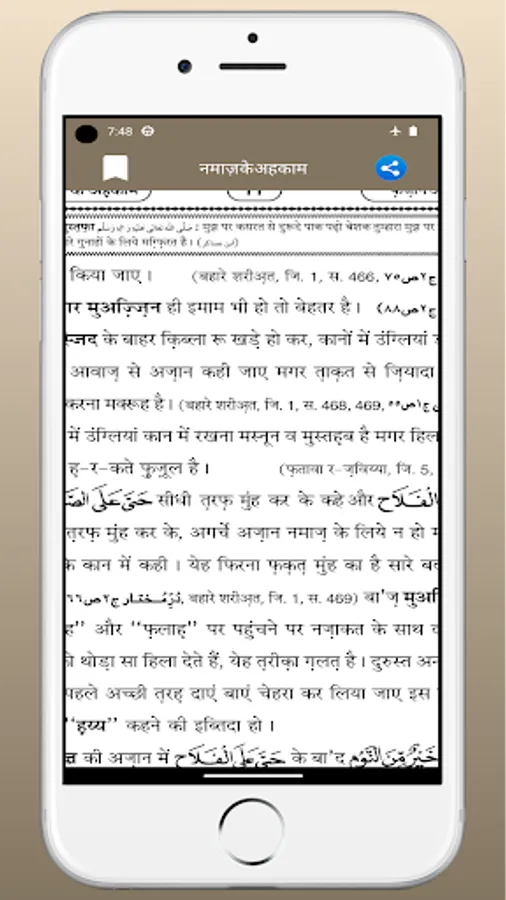 7:48
नमाज़केअहकाम
अहकाम
صلى الله تعالى عليه واله وسلم : मुझ पर कसरत से दुरूदे पाक पढ़ो बेशक तुम्हारा मुझ पर
गुनाहों के लिये मग़्फ़िरत है। (ابن عساكر)
किया जाए। (बहारे शरीअ़त, जि. 1, स. 466, ج٢ص٧٥
मुअज़्ज़िन ही इमाम भी हो तो बेहतर है। ج٢ص٨٨)
के बाहर क़िब्ला रू खड़े हो कर, कानों में उंग्लियां
आवाज़ से अज़ान कही जाए मगर त़ाक़त से ज़ियादा
करना मक्रूह है। (बहारे शरीअ़त, जि. 1, स. 468, 469, ج١ص٥٥
में उंग्लियां कान में रखना मस्नून व मुस्तह़ब है मगर हिल
ह-र-कते फ़ुज़ूल है। (फ़तावा र-ज़विय्या, जि. 5,
حَىَّ عَلَى الصَّ सीधी त़रफ़ मुंह कर के कहे और الْفَلَاح
त़रफ़ मुंह कर के, अगर्चे अज़ान नमाज़ के लिये न हो
के कान में कही। येह फिरना फ़क़त़ मुंह का है सारे
دُرِّمُختار ج٢ص٦٦, बहारे शरीअ़त, जि. 1, स. 469) बा'ज़ मुअज़्
" और "फ़लाह़" पर पहुंचने पर नज़ाकत के साथ
थोड़ा सा हिला देते हैं, येह त़रीक़ा ग़लत़ है। दुरुस्त
पहले अच्छी त़रह़ दाएं बाएं चेहरा कर लिया जाए इस
"ह़य्य" कहने की इब्तिदा हो।
की अज़ान में حَىَّ عَلَى الْفَلَاح के बा'द خَيْرٌ مِّنَ النَّوْم